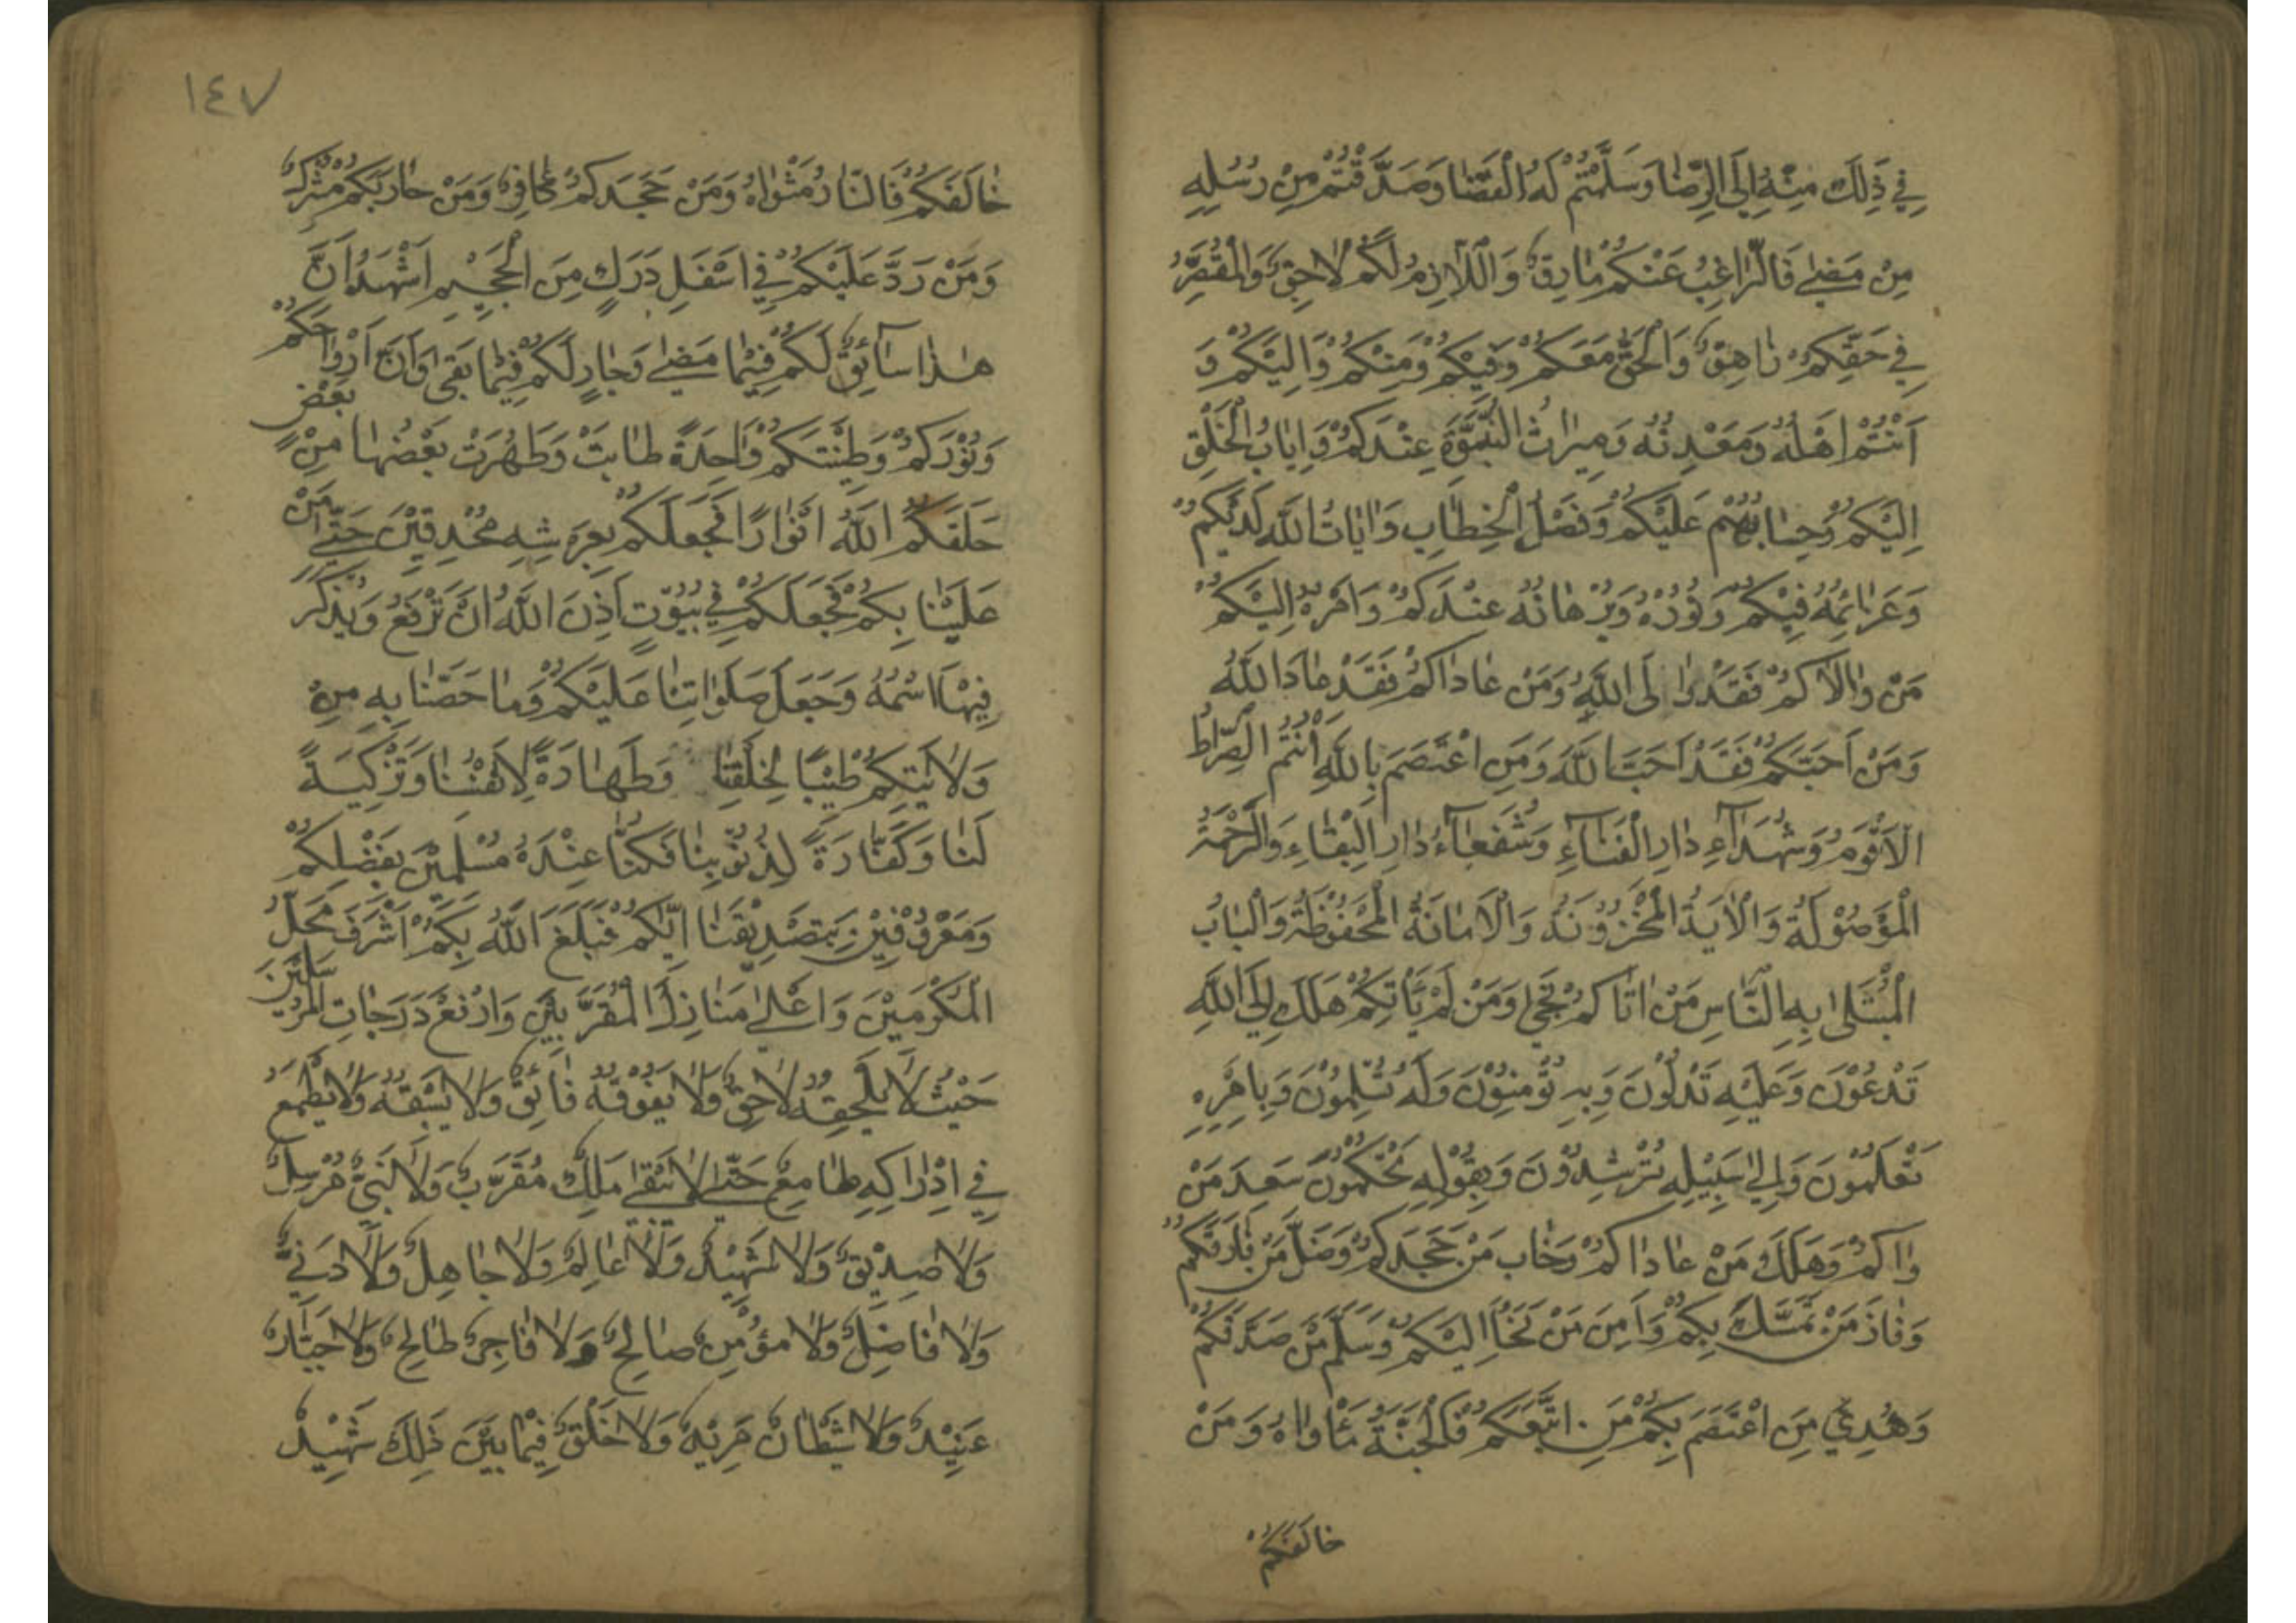 فِي ذٰلِكَ مِنْهُ اِلَى الرِّضَا وَسَلَّمْتُمْ لَهُ الْقَضَا وَصَدَّقْتُمْ مِنْ رُسُلِهِ
مِنْ مَضٰى فَالرَّاغِبُ عَنْكُمْ مَارِقٌ وَاللَّازِمُ لَكُمْ لَاحِقٌ وَالْمُقَصِّرُ
فِي حَقِّكُمْ زَاهِقٌ وَالْحَقُّ مَعَكُمْ وَفِيْكُمْ وَمِنْكُمْ وَاِلَيْكُمْ وَ
اَنْتُمْ اَهْلُهُ وَمَعْدِنُهُ وَمِيرَاثُ النُّبُوَّةِ عِنْدَكُمْ وَاِيَابُ الْخَلْقِ
اِلَيْكُمْ وَحِسَابُهُمْ عَلَيْكُمْ وَفَصْلُ الْخِطَابِ وَاٰيَاتُ اللّٰهِ لَدَيْكُمْ
وَعَزَائِمُهُ فِيْكُمْ وَنُوْرُهُ وَبُرْهَانُهُ عِنْدَكُمْ وَاَمْرُهُ اِلَيْكُمْ
مَنْ وَالَاكُمْ فَقَدْ وَالَى اللّٰهَ وَمَنْ عَادَاكُمْ فَقَدْ عَادَ اللّٰهَ
وَمَنْ اَحَبَّكُمْ فَقَدْ اَحَبَّ اللّٰهَ وَمَنِ اعْتَصَمَ بِاللّٰهِ اَنْتُمُ الصِّرَاطُ
الْاَقْوَمُ وَشُهَدَاءِ دَارِ الْفَنَاءِ وَشُفَعَاءُ دَارِ الْبَقَاءِ وَالرَّحْمَةُ
الْمَوْصُوْلَةُ وَالْاٰيَةُ الْمَخْزُوْنَةُ وَالْاَمَانَةُ الْمَحْفُوْظَةُ وَالْبَابُ
الْمُبْتَلٰى بِهِ النَّاسِ مَنْ اَتَاكُمْ نَجٰى وَمَنْ لَمْ يَأْتِكُمْ هَلَكَ اِلَى اللّٰهِ
تَدْعُوْنَ وَعَلَيْهِ تَدُلُّوْنَ وَبِهِ تُؤْمِنُوْنَ وَلَهُ تُسَلِّمُوْنَ وَبِاَمْرِهِ
تَعْلَمُوْنَ وَاِلٰى سَبِيْلِهِ تُرْشِدُوْنَ وَبِقَوْلِهِ تَحْكُمُوْنَ سَعِدَ مَنْ
وَالَاكُمْ وَهَلَكَ مَنْ عَادَاكُمْ وَخَابَ مَنْ جَحَدَكُمْ وَضَلَّ مَنْ فَارَقَكُمْ
وَفَازَ مَنْ تَمَسَّكَ بِكُمْ وَاَمِنَ مَنْ لَجَأَ اِلَيْكُمْ وَسَلَّمَ مَنْ صَدَّقَكُمْ
وَهُدِيَ مَنِ اعْتَصَمَ بِكُمْ مَنِ اتَّبَعَكُمْ فَالْجَنَّةُ مَأْوَاهُ وَمَنْ
خَالَفَكُمْ
١٤٧
خَالَفَكُمْ فَالنَّارُ مَثْوَاهُ وَمَنْ جَحَدَكُمْ كَافِرٌ وَمَنْ حَارَبَكُمْ مُشْرِكٌ
وَمَنْ رَدَّ عَلَيْكُمْ فِي اَسْفَلِ دَرَكٍ مِنَ الْجَحِيْمِ اَشْهَدُ اَنَّ
هٰذَا سَائِقٌ لَكُمْ فِيْمَا مَضٰى وَجَارٍ لَكُمْ فِيْمَا بَقٰى وَاَنَّ اَرْوَاحَكُمْ
وَنُوْرَكُمْ وَطِيْنَتَكُمْ وَاحِدَةً طَابَتْ وَطَهُرَتْ بَعْضُهَا مِنْ بَعْضٍ
خَلَقَكُمُ اللّٰهُ اَنْوَارًا فَجَعَلَكُمْ بِعَرْشِهِ مُحْدِقِيْنَ حَتّٰى مَنَّ
عَلَيْنَا بِكُمْ فَجَعَلَكُمْ فِي بُيُوْتٍ اَذِنَ اللّٰهُ اَنْ تُرْفَعَ وَيُذْكَرَ
فِيْهَا اسْمُهُ وَجَعَلَ صَلَوَاتِنَا عَلَيْكُمْ وَمَا خَصَّنَا بِهِ مِنْ
وَلَايَتِكُمْ طِيْبًا لِخَلْقِنَا وَطَهَارَةً لِاَنْفُسِنَا وَتَزْكِيَةً
لَنَا وَكَفَّارَةً لِذُنُوْبِنَا فَكُنَّا عِنْدَهُ مُسْلِمِيْنَ بِفَضْلِكُمْ
وَمَعْرُوْفِيْنَ بِتَصْدِيْقِنَا اِيَّاكُمْ فَبَلَغَ اللّٰهُ بِكُمْ اَشْرَفَ مَحَلِّ
الْمُكَرَّمِيْنَ وَاَعْلٰى مَنَازِلَ الْمُقَرَّبِيْنَ وَارْفَعَ دَرَجَاتِ الْمُرْسَلِيْنَ
حَيْثُ لَا يَلْحَقُهُ لَاحِقٌ وَلَا يَفُوْقُهُ فَائِقٌ وَلَا يَسْبِقُهُ وَلَا يَطْمَعُ
فِي اِدْرَاكِهِ طَامِعٌ حَتّٰى لَا يَبْقٰى مَلَكٌ مُقَرَّبٌ وَلَا نَبِيٌّ مُرْسَلٌ
وَلَا صِدِّيْقٌ وَلَا شَهِيْدٌ وَلَا عَالِمٌ وَلَا جَاهِلٌ وَلَا دَنِيٌّ
وَلَا فَاضِلٌ وَلَا مُؤْمِنٌ صَالِحٌ وَلَا فَاجِرٌ طَالِحٌ وَلَا جَبَّارٌ
عَنِيْدٌ وَلَا شَيْطَانٌ مَرِيْدٌ وَلَا خَلْقٌ فِيْمَا بَيْنَ ذٰلِكَ شَهِيْدٌ